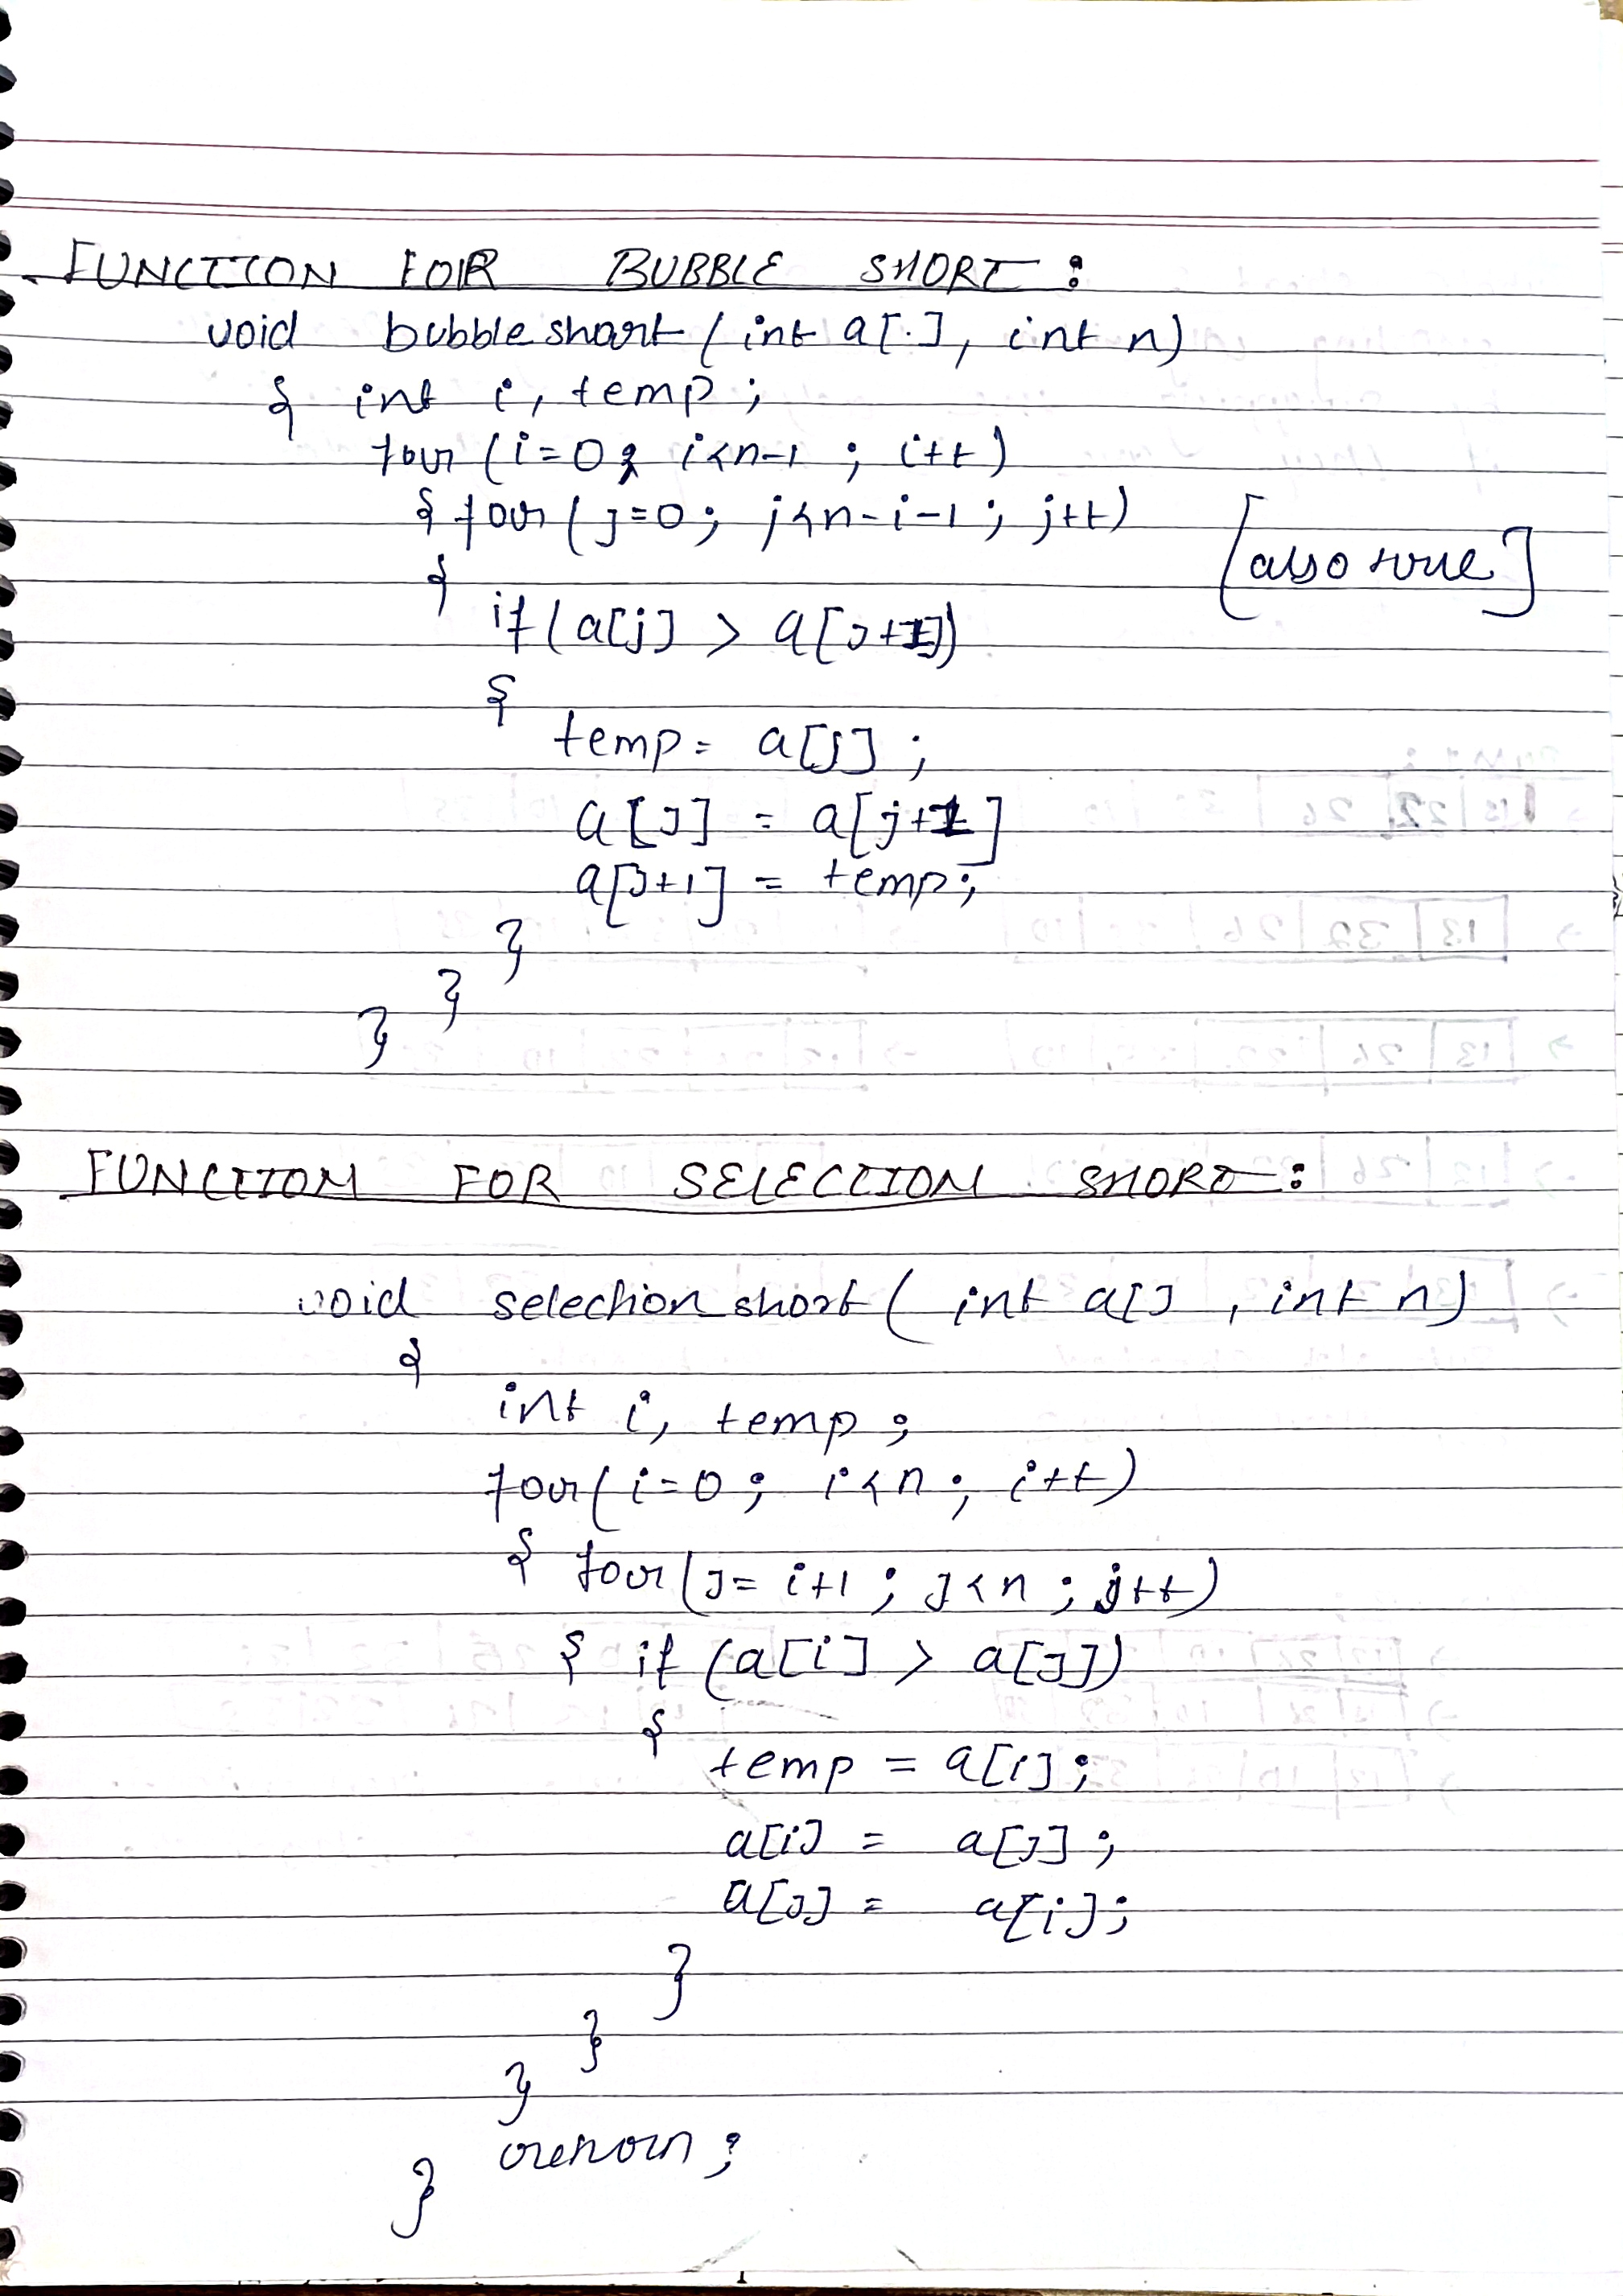 FUNCTION FOR BUBBLE SHORT :
void bubble short (int a[.], int n)
{ int i, temp ;
for (i=0; i<n-1 ; i++)
{ for (j=0; j<n-i-1; j++)
[also true]
{
if (a[j] > a[j+1])
{
temp = a[j] ;
a[j] = a[j+1]
a[j+1] = temp;
}
}
}
FUNCTION FOR SELECTION SHORT :
void selection_short ( int a[] , int n)
{
int i, temp ;
for (i=0 ; i<n ; i++)
{ for (j= i+1 ; j<n ; j++)
{ if (a[i] > a[j])
{
temp = a[i];
a[i] = a[j] ;
a[j] = a[i];
}
}
}
return ;
}